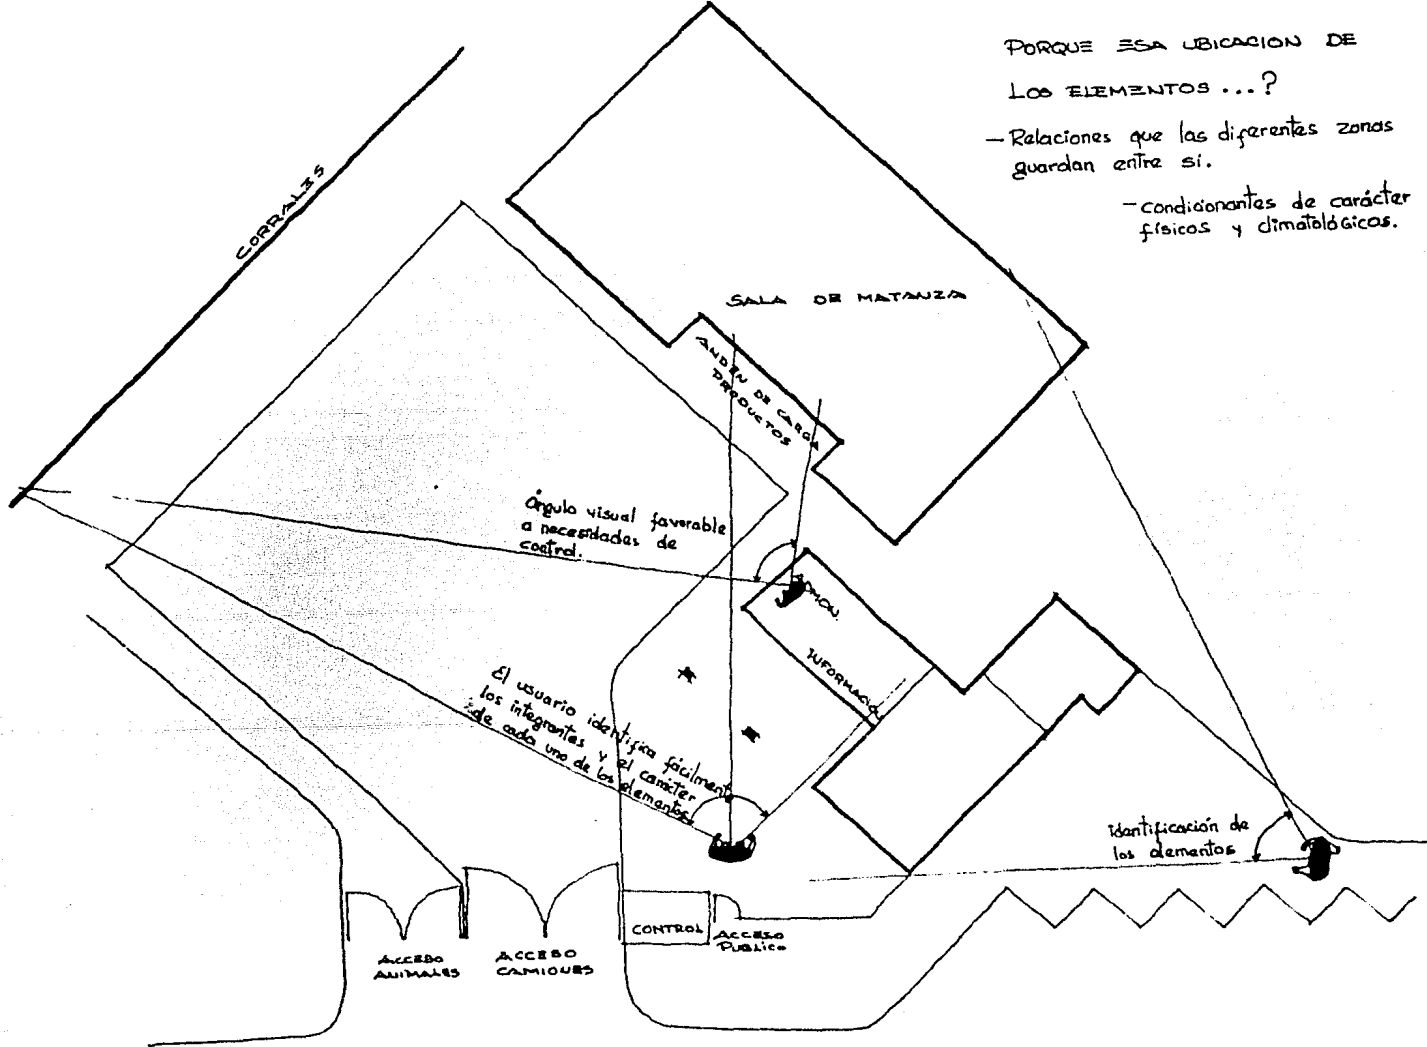 PORQUE ESA UBICACION DE
LOS ELEMENTOS ...?
- Relaciones que las diferentes zonas
guardan entre sí.
- Condicionantes de carácter
físicos y climatológicos.
CORRALES
SALA DE MATANZA
ANDEN DE CARGA
PRODUCTOS
Ángulo visual favorable
a necesidades de
control.
ADMON.
INFORMACIÓN
El usuario identifica fácilmente
los integrantes y el carácter
de cada uno de los elementos.
Identificación de
los elementos
CONTROL
ACCESO
PUBLICO
ACCESO
ANIMALES
ACCESO
CAMIONES